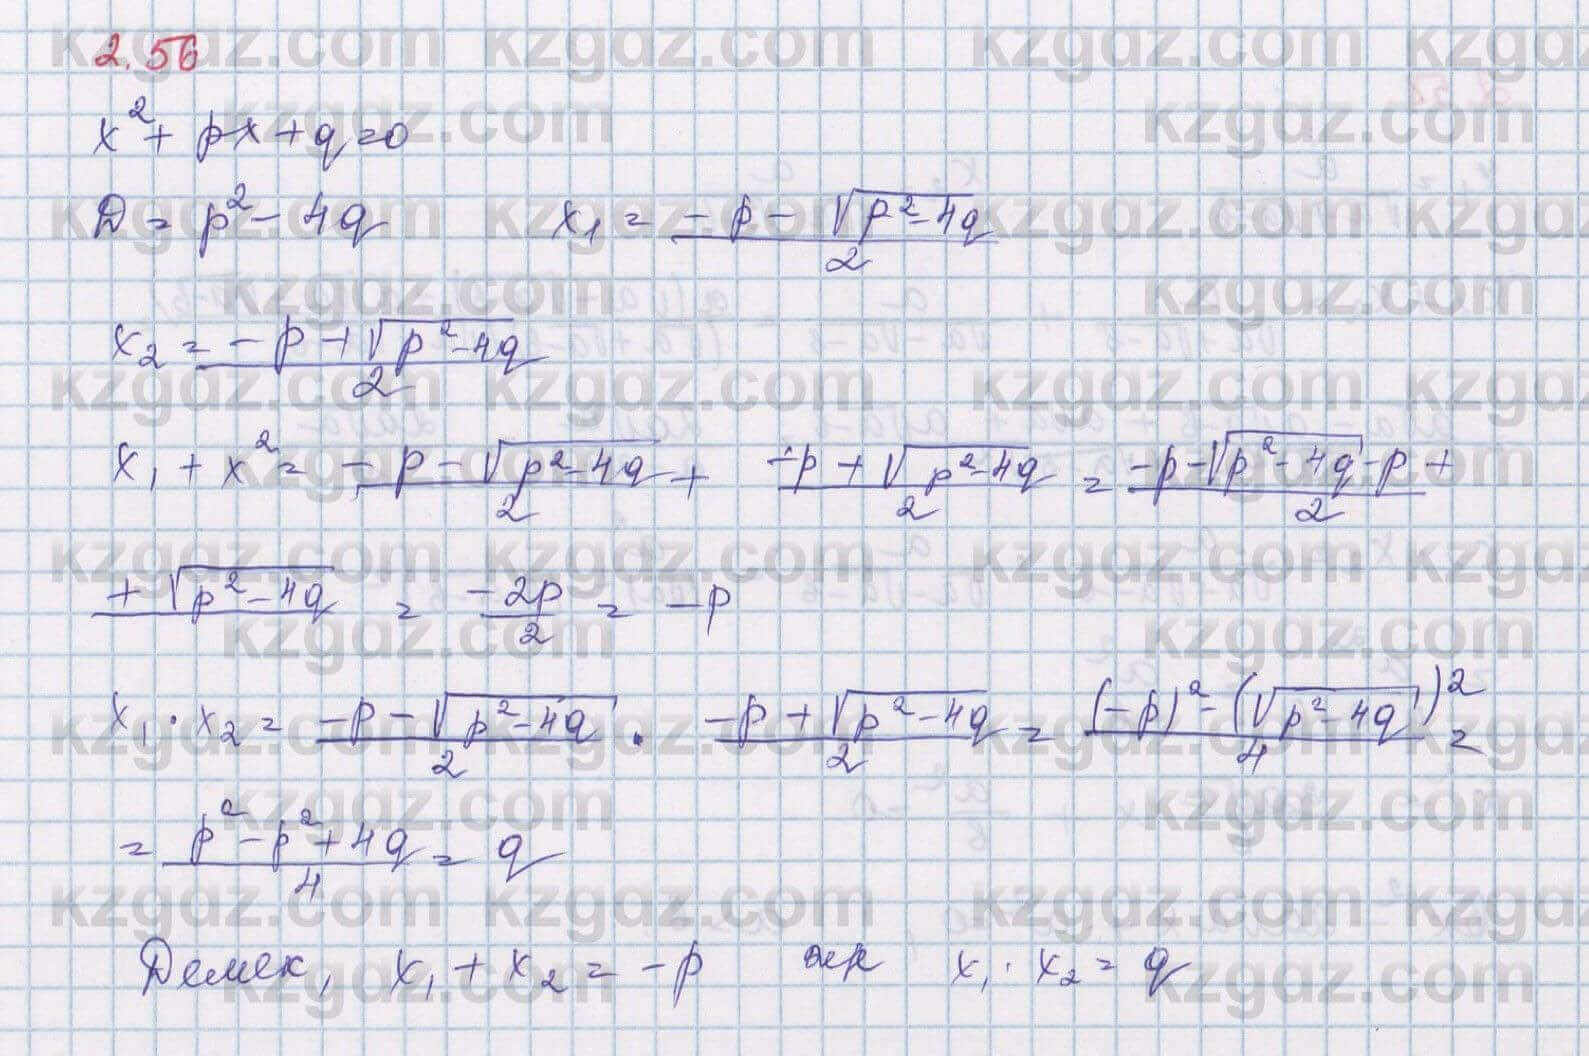 2.56
x² + px + q = 0
D = p² - 4q x₁ = (-p - √(p² - 4q))/2
x₂ = (-p + √(p² - 4q))/2
x₁ + x² = (-p - √(p² - 4q))/2 + (-p + √(p² - 4q))/2 = (-p - √(p² - 4q) - p +)/2
+ √(p² - 4q) = -2p/2 = -p
x₁ · x₂ = (-p - √(p² - 4q))/2 · (-p + √(p² - 4q))/2 = ((-p)² - (√(p² - 4q))²)/4 =
= (p² - p² + 4q)/4 = q
Демек, x₁ + x₂ = -p x₁ · x₂ = q
kzgdz.com